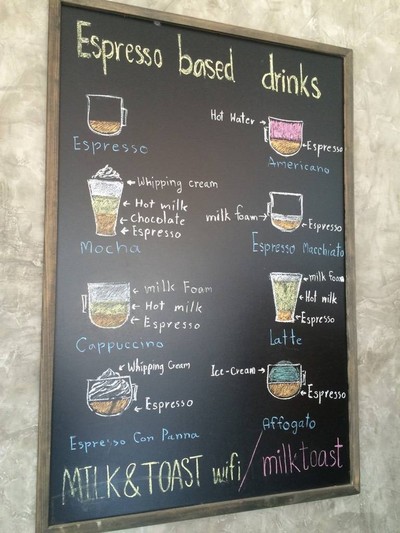 Espresso based drinks
Espresso
Hot Water
Espresso
Americano
Whipping cream
Hot milk
Chocolate
Espresso
Mocha
milk foam
Espresso
Espresso Macchiato
milk Foam
Hot milk
Espresso
Cappuccino
milk foam
Hot milk
Espresso
Latte
Whipping Cream
Espresso
Espresso Con Panna
Ice-Cream
Espresso
Affogato
MILK&TOAST wifi/milktoast